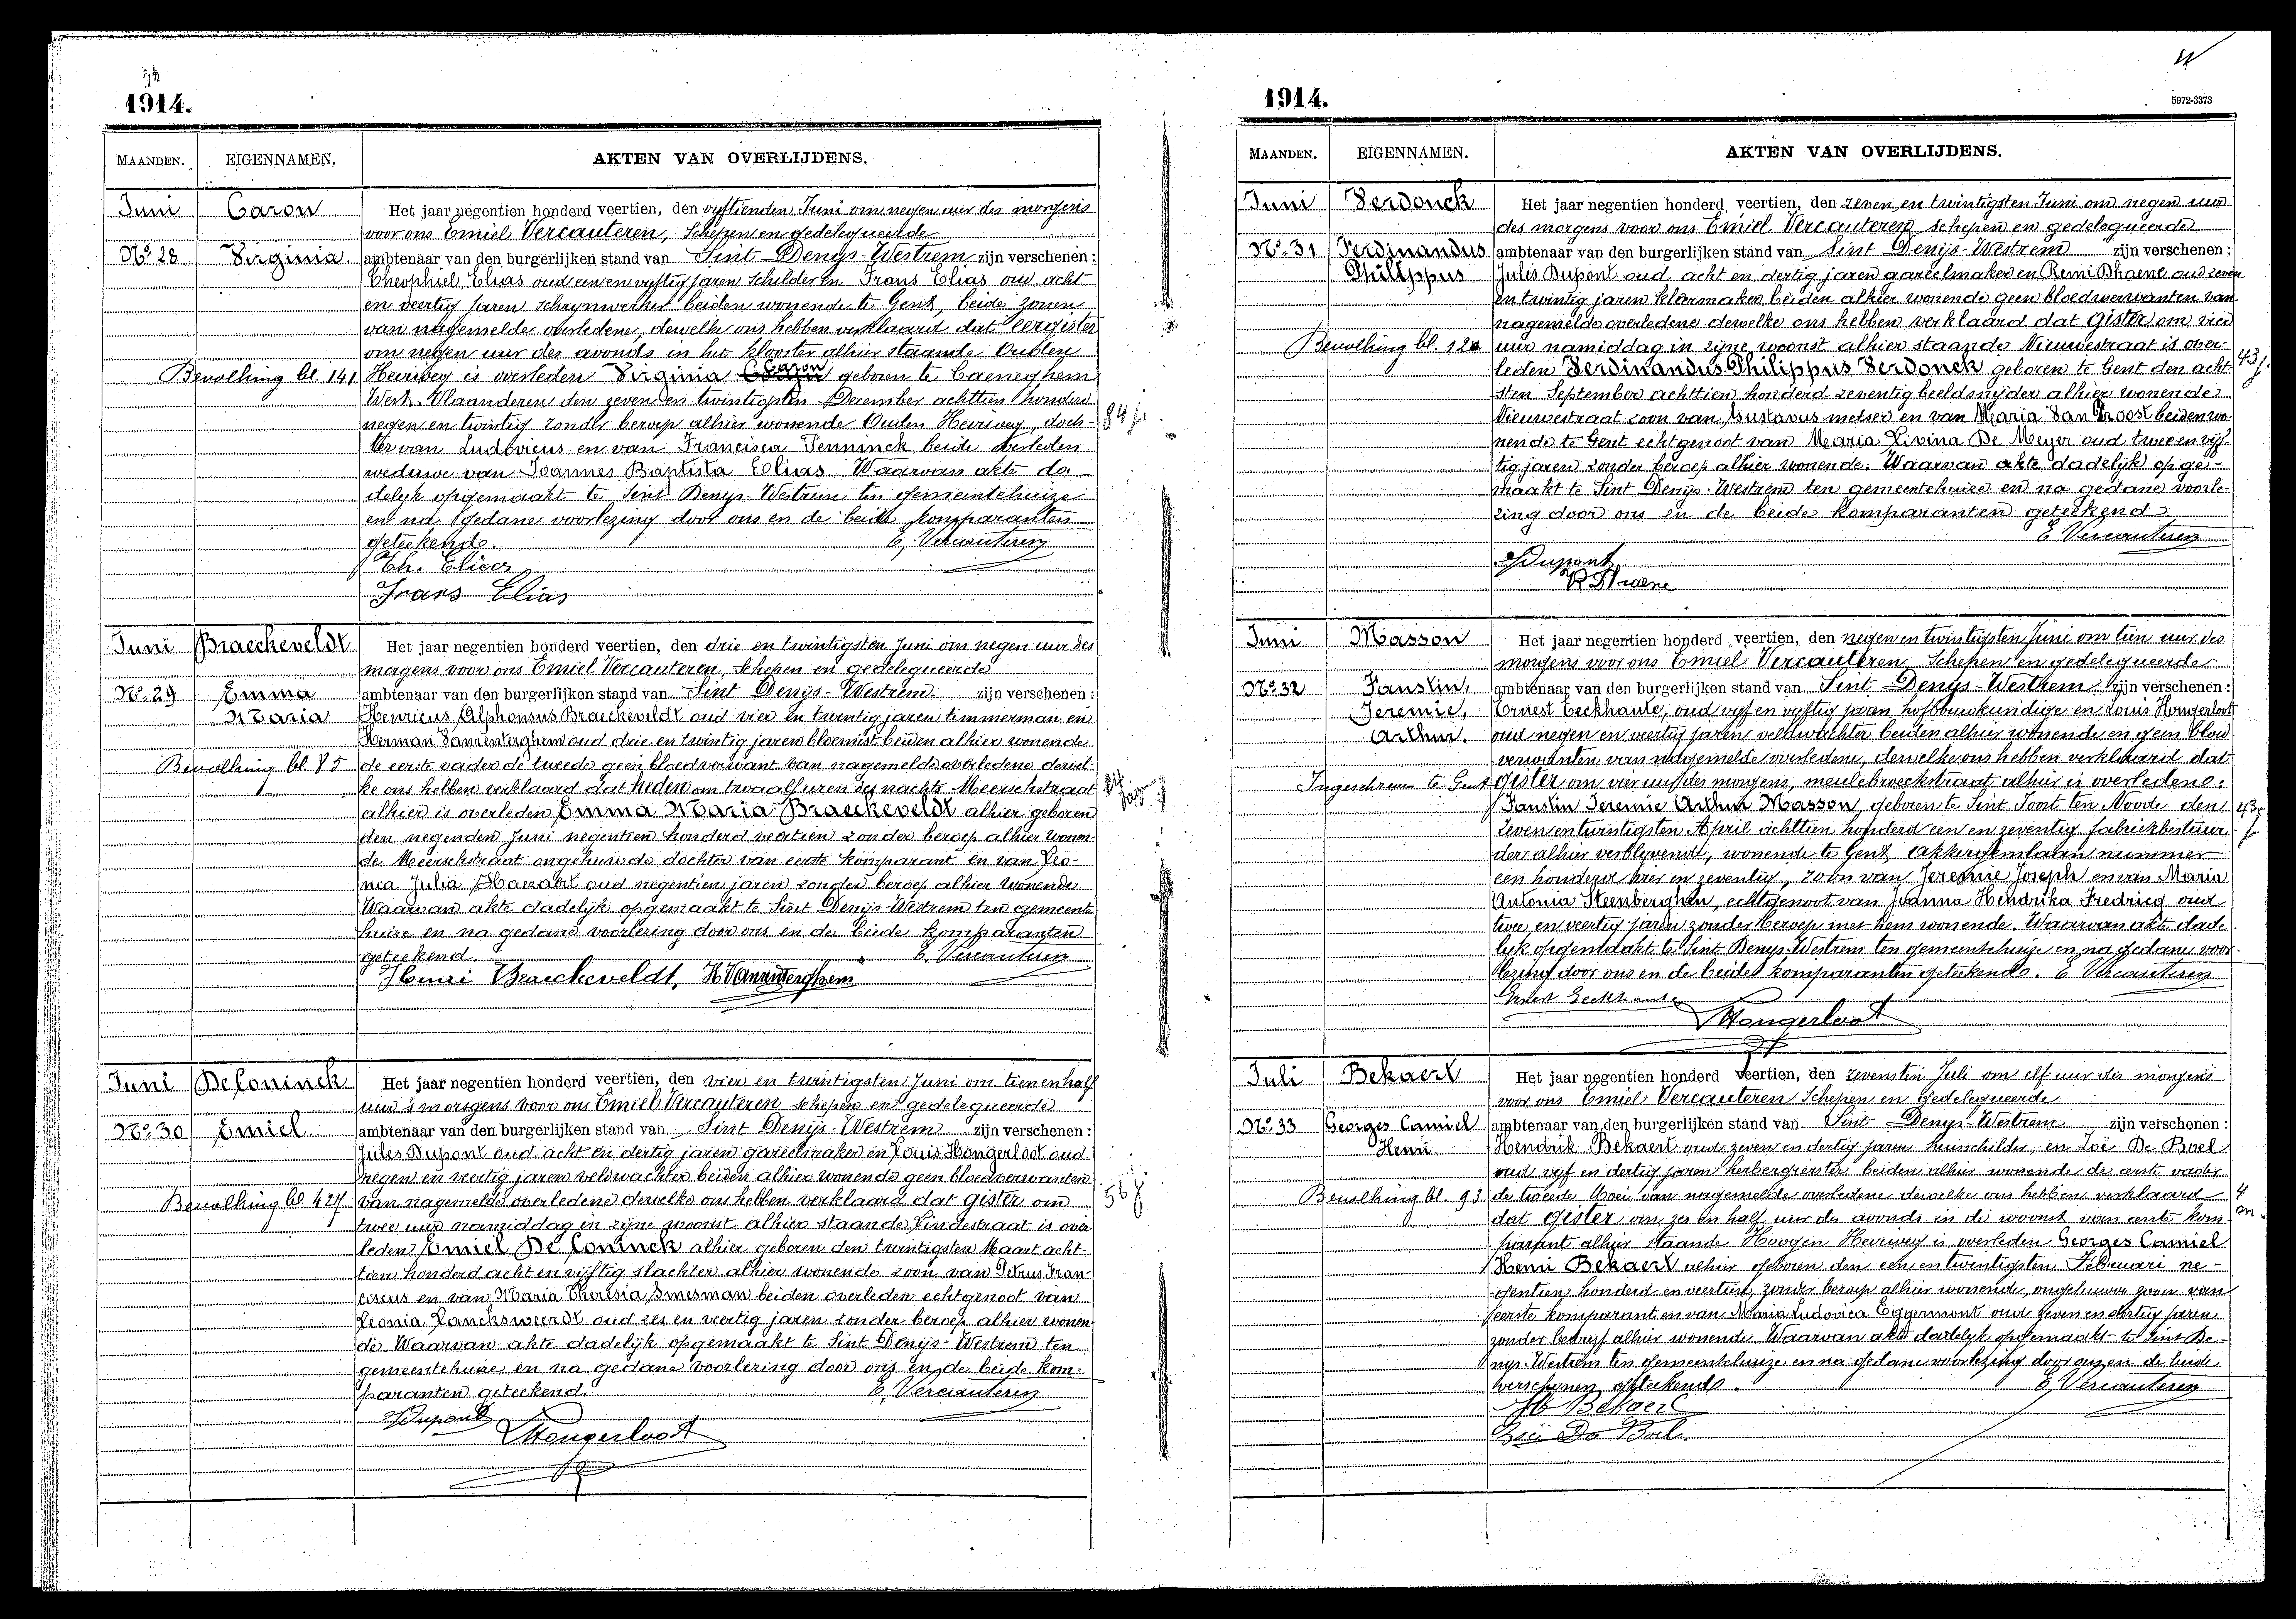 1914.
MAANDEN. EIGENNAMEN. AKTEN VAN OVERLIJDENS.
Juni Caron Het jaar negentien honderd veertien, den vyftienden Juni om negen uur des morgens
voor ons Emiel Vercauteren, Schepen en gedelegueerde
No. 28 Virginia ambtenaar van den burgerlijken stand van Sint Denys-Westrem zijn verschenen :
Theophiel Elias oud een en vyftig jaren schilder en Frans Elias oud acht
en veertig jaren schrynwerker beiden wonende te Gent, beide zonen
van nagemelde overledene, dewelke ons hebben verklaard dat eergister
om negen uur des avonds in het klooster alhier staande Ouden
Bevolking bl. 141 Heirweg is overleden Virginia Caron geboren te Caeneghem
West-Vlaanderen den zeven en twintigsten December achttien honderd
negen en twintig zonder beroep alhier wonende Ouden Heirweg, doch-
84 j.
ter van Ludovicus en van Francisca Penninck beide overleden
weduwe van Joannes Baptista Elias. Waarvan akte da
delyk opgemaakt te Sint Denys-Westrem ten gemeentehuize
en na gedane voorlezing door ons en de beide komparanten
geteekend. E. Vercauteren
Th. Elias
Frans Elias
Juni Braeckeveldt Het jaar negentien honderd veertien, den drie en twintigsten Juni om negen uur des
morgens voor ons Emiel Vercauteren, schepen en gedelegueerde
No. 29 Emma ambtenaar van den burgerlijken stand van Sint Denijs-Westrem zijn verschenen :
Maria Henricus Alphonsus Braeckeveldt oud vier en twintig jaren timmerman en
Herman oud drie en twintig jaren bloemist beiden alhier wonende
Bevolking bl. 85 de eerste vader de tweede geen bloedverwant van nagemelde overledene dewel-
ke ons hebben verklaard dat heden om twaalf uren des nachts Meerschstraat
alhier is overleden Emma Maria Braeckeveldt alhier geboren
den negenden Juni negentien honderd veertien zonder beroep alhier wonen-
de Meerschstraat ongehuwde dochter van eerste komparant en van Leo-
nia Julia oud negentien jaren zonder beroep alhier wonende
Waarvan akte dadelijk opgemaakt te Sint Denijs-Westrem ten gemeente
huize en na gedane voorlezing door ons en de beide komparanten
geteekend. E. Vercauteren
Henri Braeckeveldt,
Juni De Coninck Het jaar negentien honderd veertien, den vier en twintigsten Juni om tien en half
uur 's morgens voor ons Emiel Vercauteren schepen en gedelegueerde
No. 30 Emiel ambtenaar van den burgerlijken stand van Sint Denijs-Westrem zijn verschenen :
Jules Dupont oud acht en dertig jaren gareelmaker en Louis Hongerloot oud
negen en veertig jaren veldwachter beiden alhier wonende geen bloedverwanten
Bevolking bl. 427 van nagemelde overledene dewelke ons hebben verklaard dat gister om
56 j
twee uur namiddag in zijne woonst alhier staande Lindestraat is over
leden Emiel De Coninck alhier geboren den twintigsten Maart acht-
tien honderd acht en vijftig slachter alhier wonende zoon van Petrus Fran-
ciscus en van Maria Theresia beiden overleden echtgenoot van
Leonia Lancksweerdt oud zes en veertig jaren zonder beroep alhier wonen
de Waarvan akte dadelijk opgemaakt te Sint Denijs-Westrem ten
gemeentehuize en na gedane voorlezing door ons en de beide kom-
paranten geteekend. E. Vercauteren
JDupont
Hongerloot
1914.
5972-3373
MAANDEN. EIGENNAMEN. AKTEN VAN OVERLIJDENS.
Juni Verdonck Het jaar negentien honderd veertien, den zeven en twintigsten Juni om negen uur
des morgens voor ons Emiel Vercauteren schepen en gedelegueerde
No. 31 Ferdinandus ambtenaar van den burgerlijken stand van Sint Denijs-Westrem zijn verschenen :
Philippus Jules Dupont oud acht en dertig jaren gareelmaker en Remi Dhaene oud zeven
en twintig jaren kleermaker beiden alhier wonende geen bloedverwanten van
nagemelde overledene dewelke ons hebben verklaard dat gister om vier
Bevolking bl. 120 uur namiddag in zijne woonst alhier staande Nieuwestraat is over-
43 j.
leden Ferdinandus Philippus Verdonck geboren te Gent den acht
sten September achttien honderd zeventig beeldsnijder alhier wonende
Nieuwestraat zoon van Gustavus metser en van Maria Van Troost beiden wo-
nende te Gent echtgenoot van Maria Livina De Meyer oud twee en vijf-
tig jaren zonder beroep alhier wonende. Waarvan akte dadelijk opge-
maakt te Sint Denijs-Westrem ten gemeentehuize en na gedane voorle-
zing door ons en de beide komparanten geteekend
E. Vercauteren
JDupont
R Dhaene
Juni Masson Het jaar negentien honderd veertien, den negen en twintigsten Juni om tien uur des
morgens voor ons Emiel Vercauteren Schepen en gedelegueerde
No. 32 Faustin, ambtenaar van den burgerlijken stand van Sint Denijs-Westrem zijn verschenen :
Jeremie, Ernest Eeckhaute, oud vyf en vyftig jaren hofbouwkundige en Louis Hongerloot
Arthur. oud negen en veertig jaren veldwachter beiden alhier wonende en geen bloed
verwanten van nagemelde overledene, dewelke ons hebben verklaard dat
Ingeschreven te Gent gister om vier uur des morgens, meulebroeckstraat alhier is overledene:
Faustin Jeremie Arthur Masson, geboren te Sint Joost ten Noode den
43 j
zeven en twintigsten April achttien honderd een en zeventig fabriekbestuur
der alhier verblyvend, wonende te Gent, nummer
een honderd en zeventig, zoon van Jeremie Joseph en van Maria
Antonia Steenberghen, echtgenoot van Joanna Hendrika Fredricq oud
twee en veertig jaren zonder beroep met hem wonende. Waarvan akte dade
lyk opgemaakt te Sint Denys-Westrem ten gemeentehuize en na gedane voor-
lezing door ons en de beide komparanten geteekend. E Vercauteren
Ernest Eeckhaute
Hongerloot
Juli Bekaert Het jaar negentien honderd veertien, den zevensten Juli om elf uur des morgens
voor ons Emiel Vercauteren Schepen en gedelegueerde
No. 33 Georges Camiel ambtenaar van den burgerlijken stand van Sint Denys-Westrem zijn verschenen :
Henri Hendrik Bekaert oud zeven en dertig jaren huisschilder, en Zoë De Boel
oud vyf en dertig jaren herbergierster beiden alhier wonende de eerste vader
Bevolking bl. 93 de tweede Moei van nagemelde overledene dewelke ons hebben verklaard
4 m.
dat gister om zes en half uur des avonds in de woonst van eerste kom
parant alhier staande Hoogen Heirweg is overleden Georges Camiel
Henri Bekaert alhier geboren den een en twintigsten Februari ne-
gentien honderd en veertien, zonder beroep alhier wonende, ongehuwde zoon van
eerste komparant en van Maria Ludovica Eggermont oud zeven en dertig jaren
zonder bedryf alhier wonende. Waarvan akte dadelyk opgemaakt te Sint De-
nys-Westrem ten gemeentehuize en na gedane voorlezing door ons en de beide
verschynen geteekend. E. Vercauteren
H Bekaert
Zoë De Boel.